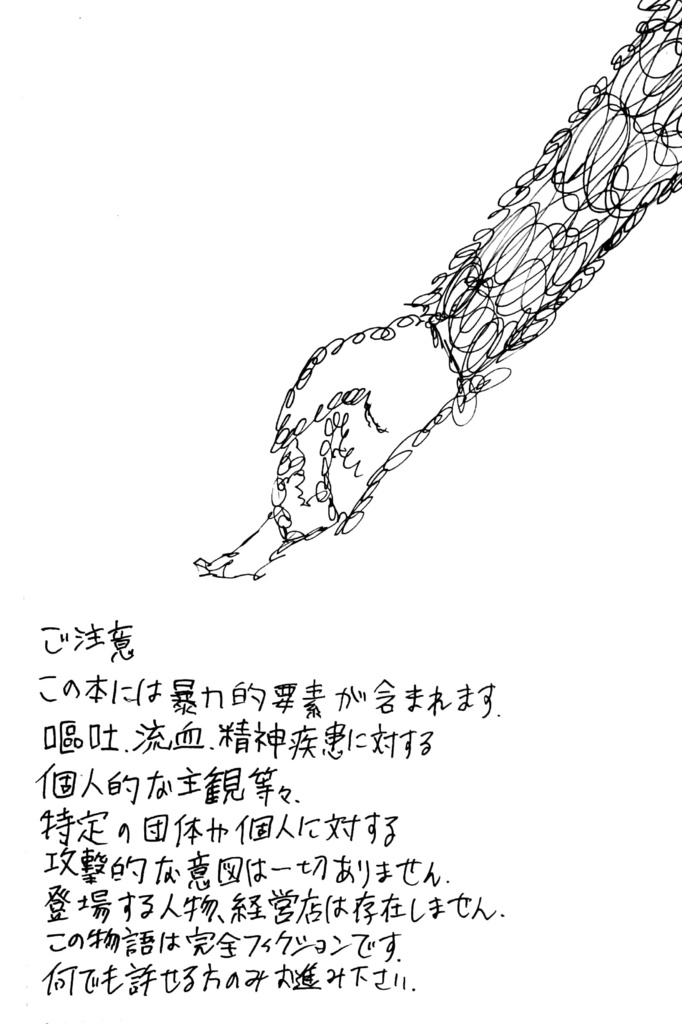 ご注意
この本には暴力的要素が含まれます.
嘔吐.流血.精神疾患に対する
個人的な主観等々.
特定の団体や個人に対する
攻撃的な意図は一切ありません.
登場する人物、経営店は存在しません.
この物語は完全フィクションです.
何でも許せる方のみお進み下さい.